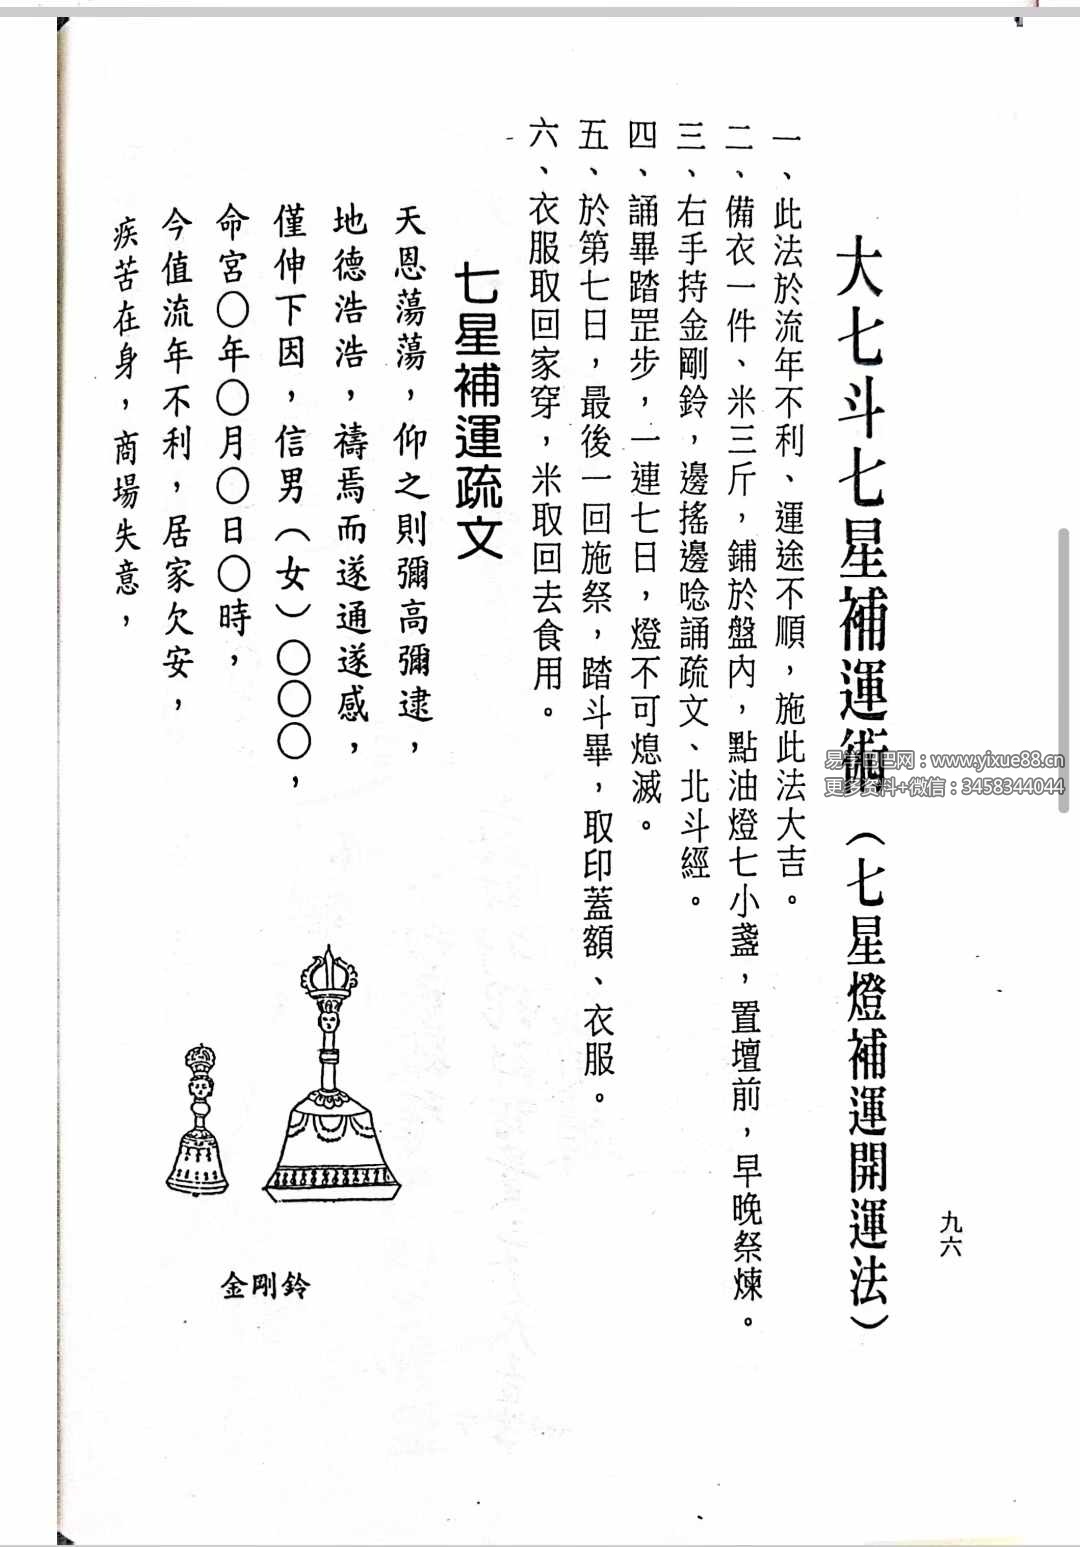 九六
大七斗七星補運術（七星燈補運開運法）
一、此法於流年不利、運途不順，施此法大吉。
二、備衣一件、米三斤，鋪於盤內，點油燈七小盞，置壇前，早晚祭煉。
三、右手持金剛鈴，邊搖邊唸誦疏文、北斗經。
四、誦畢踏罡步，一連七日，燈不可熄滅。
五、於第七日，最後一回施祭，踏斗畢，取印蓋額、衣服。
六、衣服取回家穿，米取回去食用。
七星補運疏文
天恩蕩蕩，仰之則彌高彌逮，
地德浩浩，禱焉而遂通遂感，
僅伸下因，信男（女）〇〇〇，
命宮〇年〇月〇日〇時，
今值流年不利，居家欠安，
疾苦在身，商場失意，
金剛鈴
易学巴巴网：www.yixue88.cn
更多资料+微信：3458344044